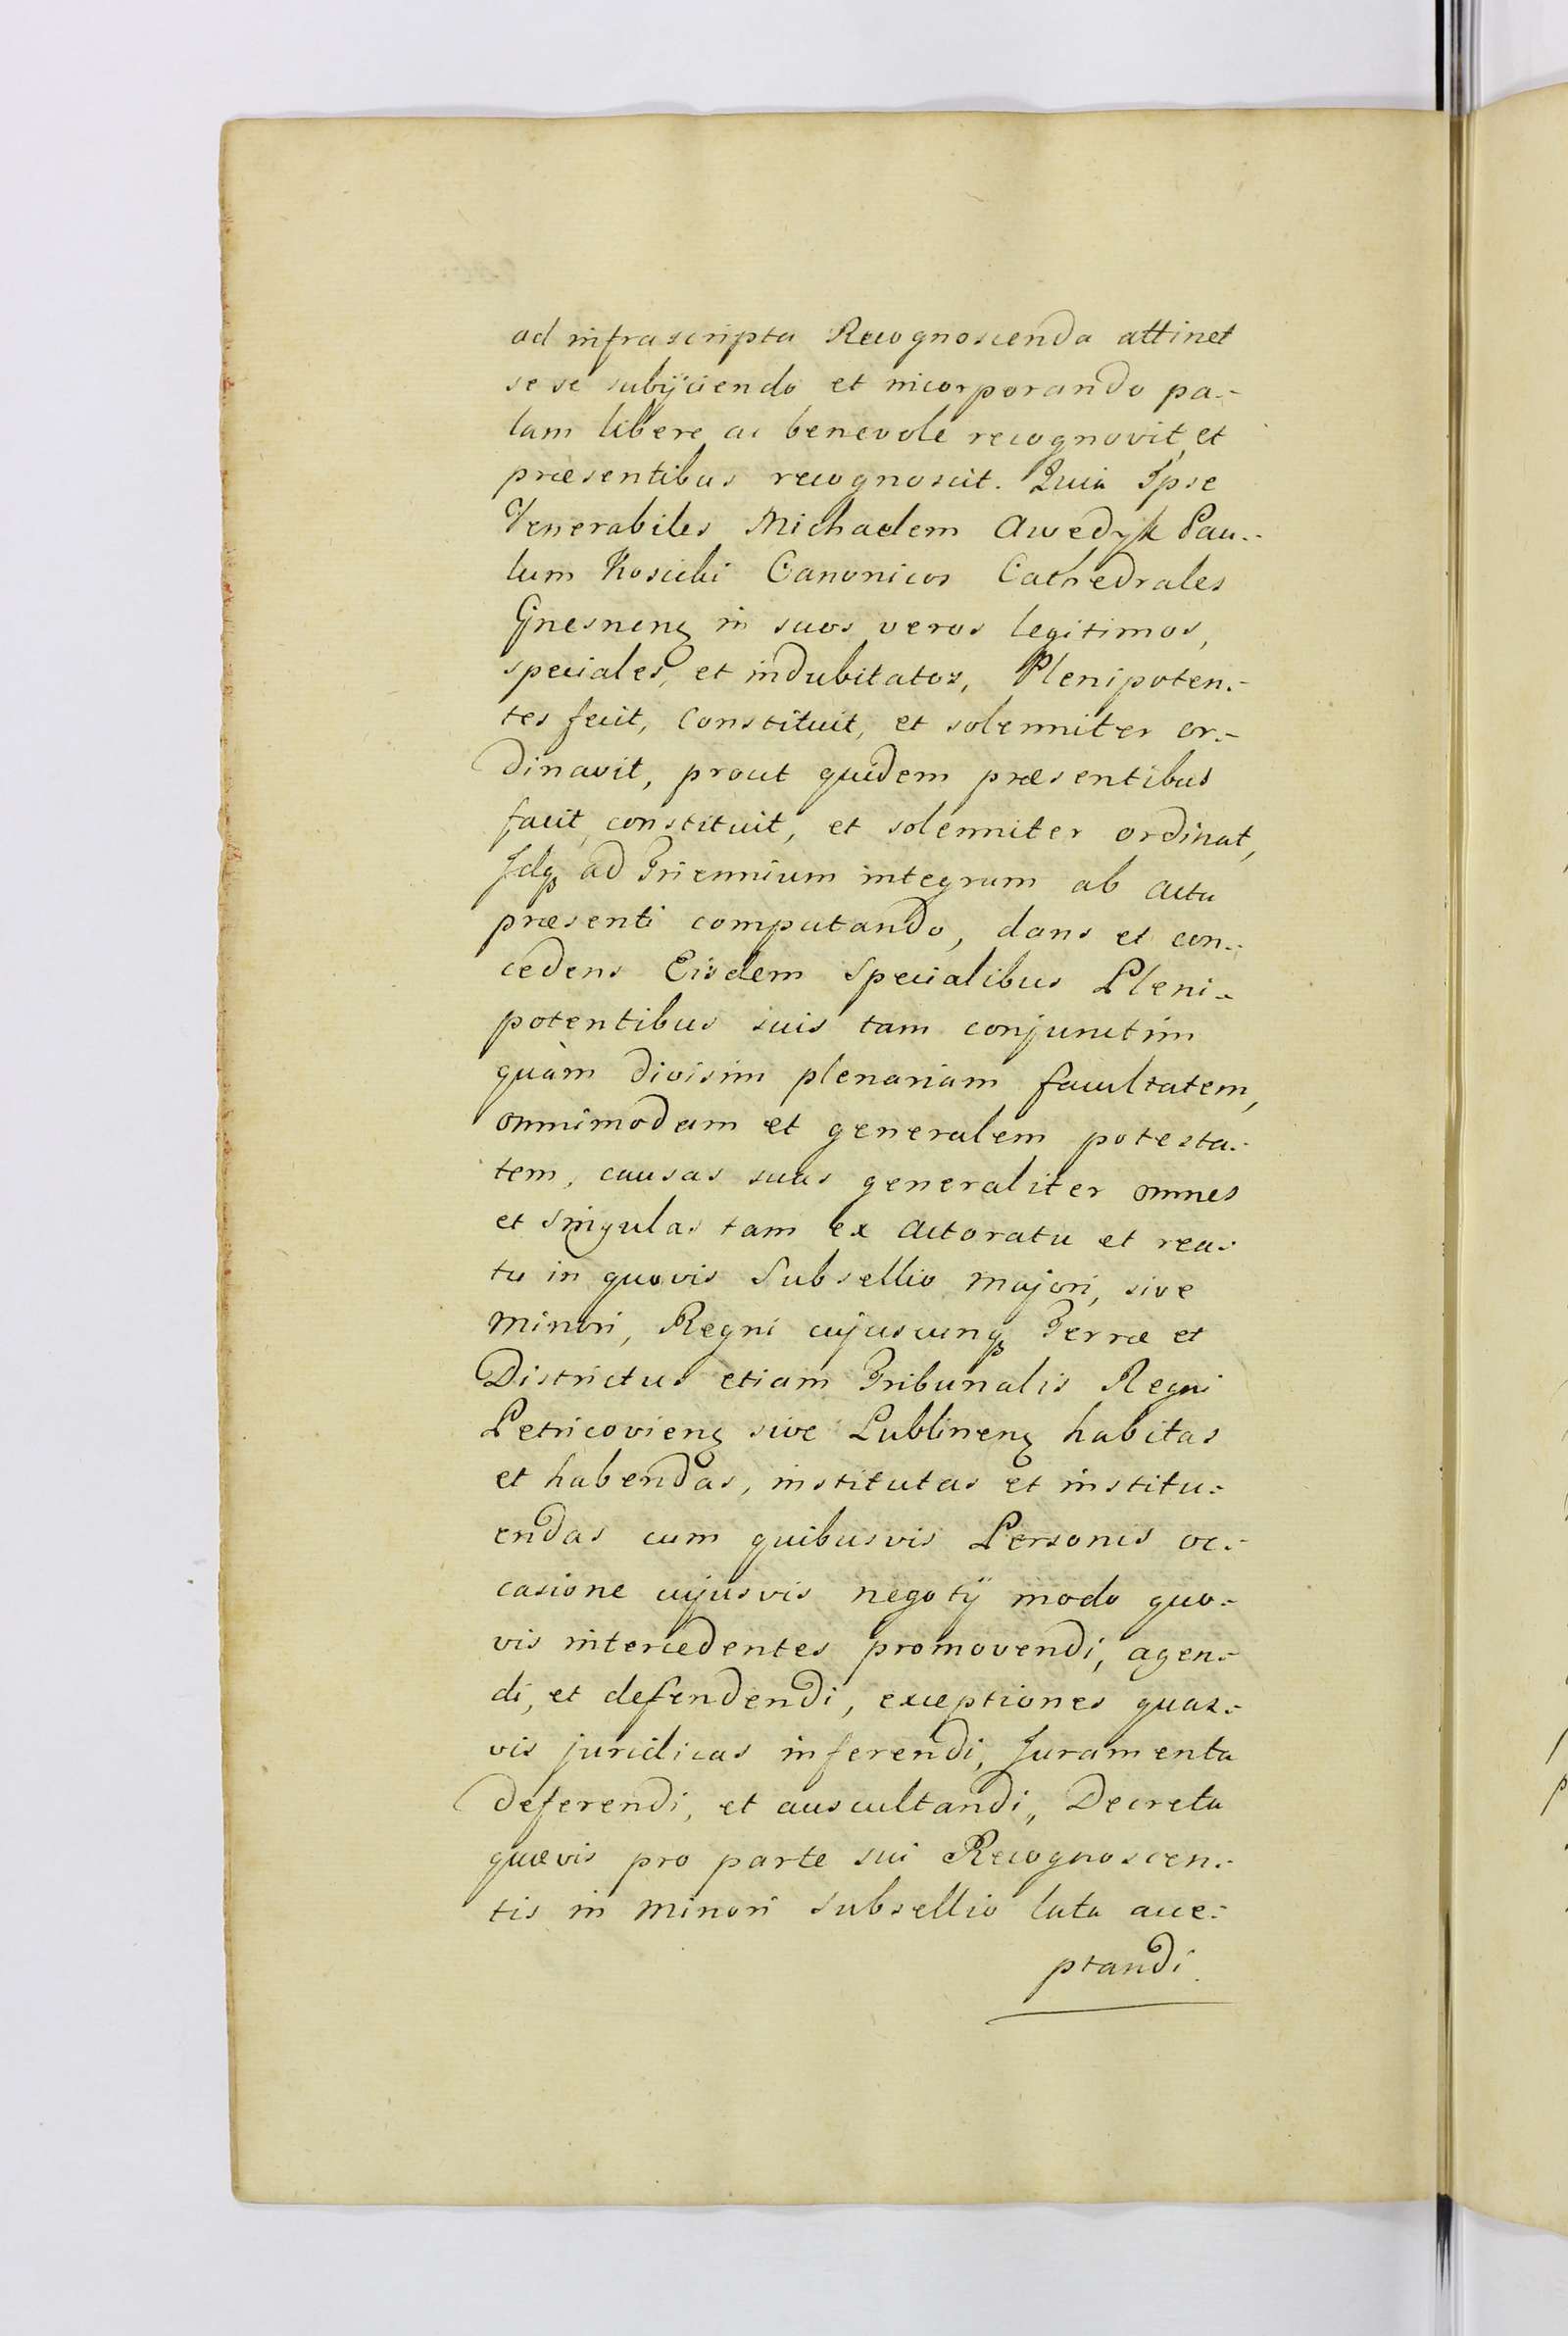 ad infrascripta Recognoscenda attinet
se se subijciendo et incorporando pa-
lam libere ac benevole recognovit, et
præsentibus recognoscit. Quia Ipse
Venerabiles Michaelem Awedyk Pau-
lum Koscicki Canonicos Cathedrales
Gnesnenꝫ in suos veros legitimos,
speciales, et indubitatos, Plenipoten-
tes fecit, constituit, et solenniter or-
dinavit, prout quidem præsentibus
facit, constituit, et solenniter ordinat,
Idqꝫ ad Triennium integrum ab actu
præsenti computando, dans et con-
cedens Eisdem Specialibus Pleni-
potentibus suis tam conjunctim
quàm divisim plenariam facultatem,
omnimodam et generalem potesta-
tem, causas suas generaliter omnes
et singulas tam ex Actoratu et rea-
tu in quovis Subsellio majori, sive
minori, Regni cujuscunqꝫ Terræ et
Districtus etiam Tribunalis Regni
Petricovienꝫ sive Lublinenꝫ habitas
et habendas, institutas et institu-
endas cum quibusvis Personis oc-
casione cujusvis negotij modo quo-
vis intercedentes promovendi, agen-
di, et defendendi, exceptiones quas-
vis juridicas inferendi, Juramenta
deferendi, et auscultandi, Decreta
quævis pro parte sui Recognoscen-
tis in minori subsellio lata acce-
ptandi.